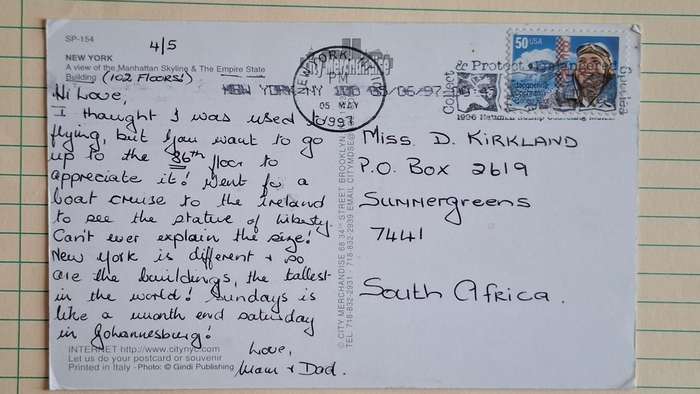 SP-154
4/5
NEW YORK
A view of the Manhattan Skyline & The Empire State
Building (102 FLOORS!)
Hi Love,
I thought I was used to
flying, but you want to go
up to the 86th floor to
appreciate it! Went for a
boat cruise to the Ireland
to see the statue of Liberty.
Can't ever explain the size!
New York is different + so
are the buildings, the tallest
in the world! Sundays is
like a month end saturday
in Johannesburg!
Love,
Mam + Dad.
INTERNET http://www.citynyc.com
Let us do your postcard or souvenir
Printed in Italy - Photo: © Gindi Publishing
© CITY MERCHANDISE 68 34TH STREET BROOKLYN
TEL: 718-832-2931 718-832-2939 EMAIL CITYMDSE
NEW YORK, NY
PM
05 MAY
1997
NEW YORK NY 100 05/06/97
Collect
& Protect
1996 National Stamp Collecting Month
50 USA
Miss D. Kirkland
P.O. Box 2619
Summergreens
7441
South Africa.